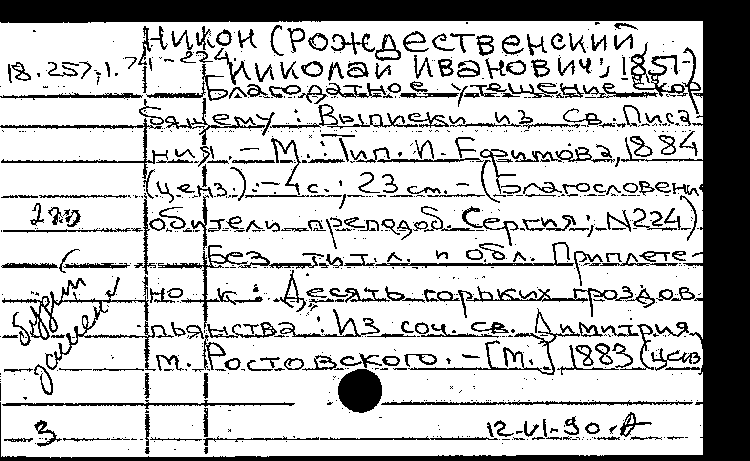 Никон (Рождественский,
18.257;1.741-224 Николай Иванович; 1851-)
Благодатное утешение скор
бящему : Выписки из Св. Писа-
ния. - М. : Тип. И. Ефимова, 1884
(ценз.). - 4 с. ; 23 см. - (Благословение
220 обители преподоб. Сергия; N224)
Без тит. л. и обл. Приплете-
но к : Десять горьких гроздов
будет
пьянства : Из соч. св. Димитрия,
м. Ростовского. - [М.], 1883 (ценз
3 12-VI-90.